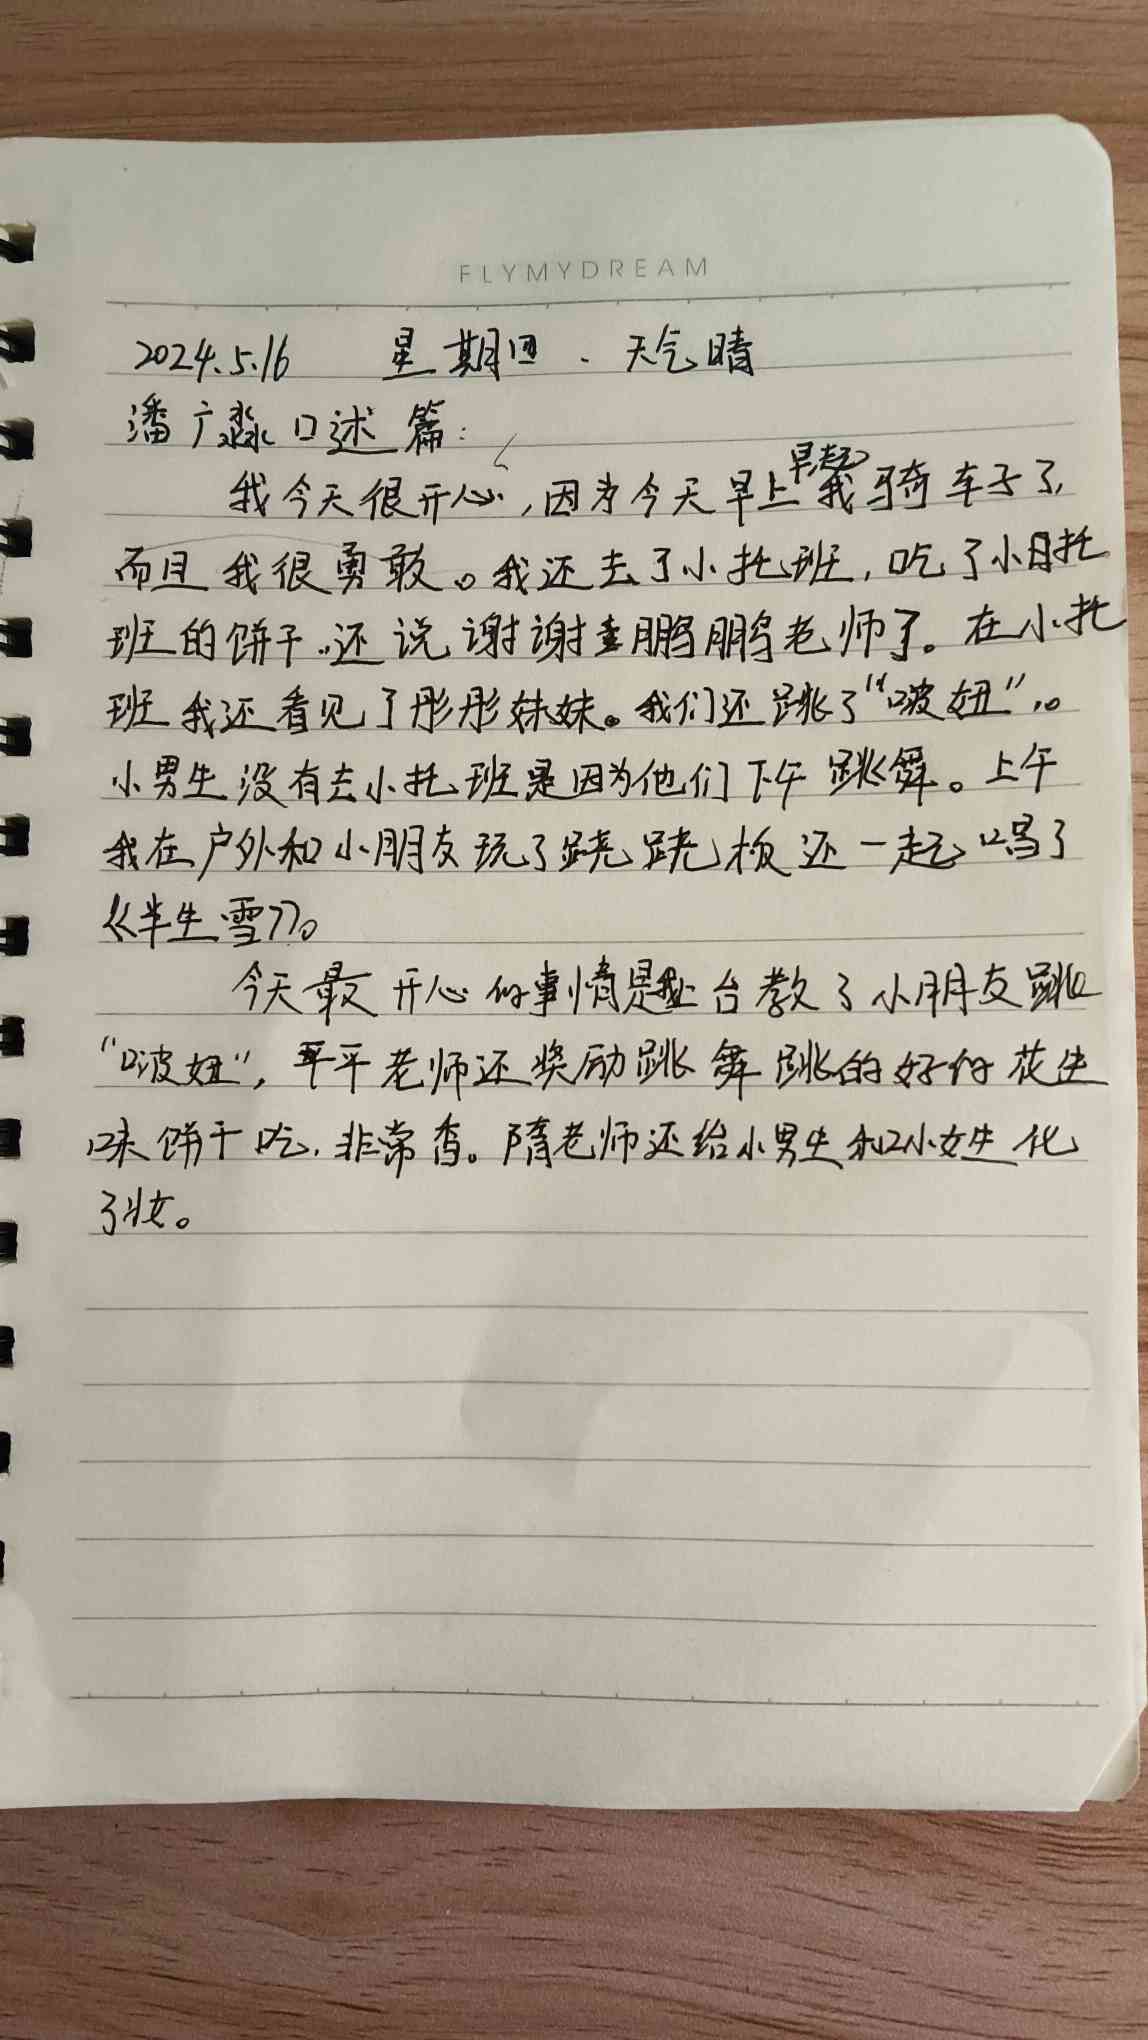 FLYMYDREAM
2024.5.16 星期四 . 天气晴
潘广淼口述篇:
我今天很开心,因为今天早上早起我骑车子了,
而且我很勇敢。我还去了小托班,吃了小托
班的饼干.还说谢谢鹏鹏老师了。在小托
班我还看见了彤彤妹妹。我们还跳了“啵妞”。
小男生没有去小托班是因为他们下午跳舞。上午
我在户外和小朋友玩了跷跷板还一起唱了
《半生雪》。
今天最开心的事情是上台教了小朋友跳
“啵妞”,平平老师还奖励跳舞跳的好的花生
味饼干吃,非常香。隋老师还给小男生和小女生化
了妆。